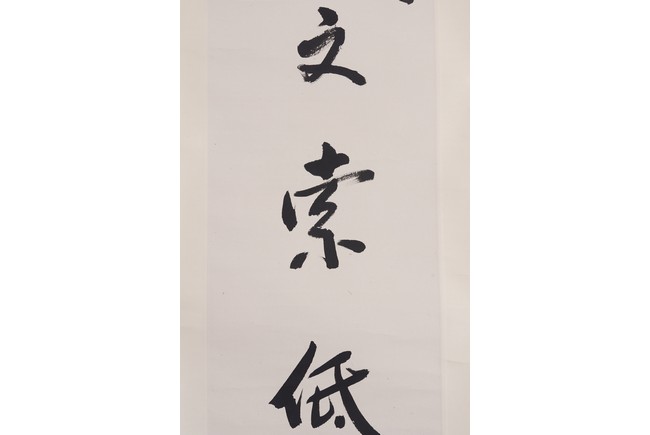 文索低